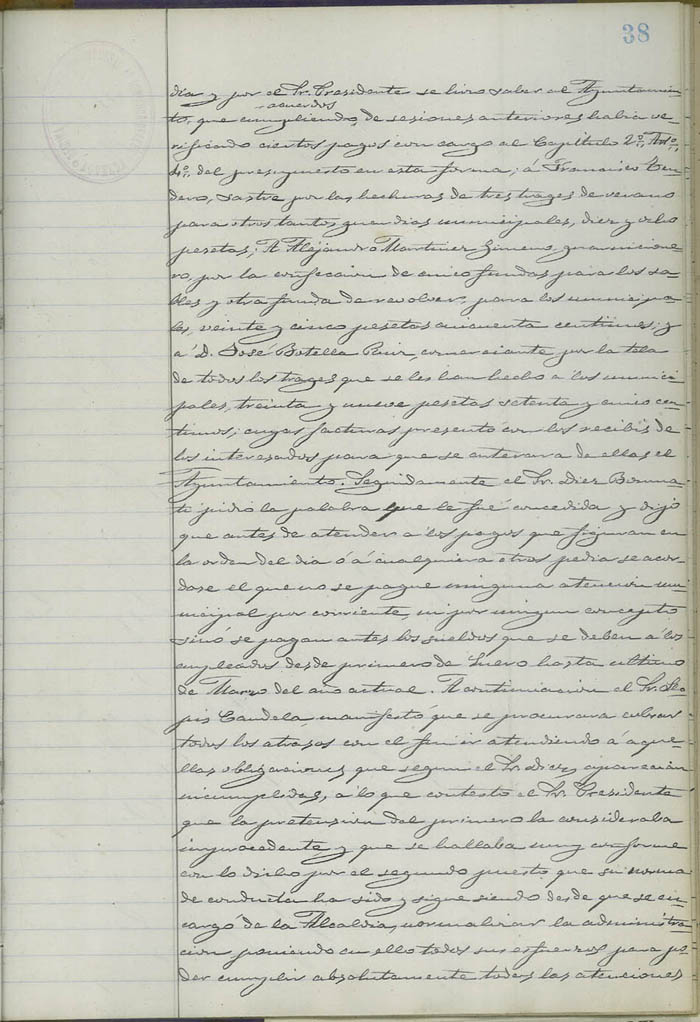 38
dia y por el Sr. Presidente se hizo saber al Ayuntamien-
acuerdos
to, que cumpliendo, de sesiones anteriores habia ve-
rificado ciertos pagos con cargo al Capitulo 2º. Artº.
4º. del presupuesto en esta forma; á Francisco Cen-
dero, sastre por las hechuras de tres trages de verano
para otros tantos guardias municipales, diez y ocho
pesetas; A Alejandro Martinez Gimeno, guarnicione-
ro, por la confeccion de cinco fundas para los sa-
bles y otra funda de revolver, para los municipa-
les, veinte y cinco pesetas cincuenta centimos; y
a D. José Botella Ruiz, comerciante por la tela
de todos los trages que se les han hecho a los munici
pales, treinta y nueve pesetas setenta y cinco cen-
timos; cuyas facturas presentó con los recibis de
los interesados para que se enterara de ellas el
Ayuntamiento. Seguidamente el Sr. Diez
ti pidio la palabra que le fué concedida y dijo
que antes de atender a los pagos que figuran en
la orden del dia ó á cualquiera otros pedia se acor-
dase el que no se pague ninguna atencion mu-
nicipal por corriente, ni por ningun concepto
sinó se pagan antes los sueldos que se deben á los
empleados desde primero de Enero hasta ultimo
de Marzo del año actual. A continuacion el Sr. Se-
pis Candela, manifestó que se procurara cobrar
todos los atrasos con el fin ir atendiendo á aque-
llas obligaciones que segun el Sr. Diez, aparecian
incumplidas, a lo que contesto el Sr. Presidente
que la pretension del primero la consideraba
improcedente, y que se hallaba muy conforme
con lo dicho por el segundo puesto que su norma
de conducta ha sido y sigue siendo desde que se en-
cargó de la Alcaldia, normalizar la administra
cion poniendo en ello todos sus esfuerzos para po-
der cumplir absolutamente todas las atenciones